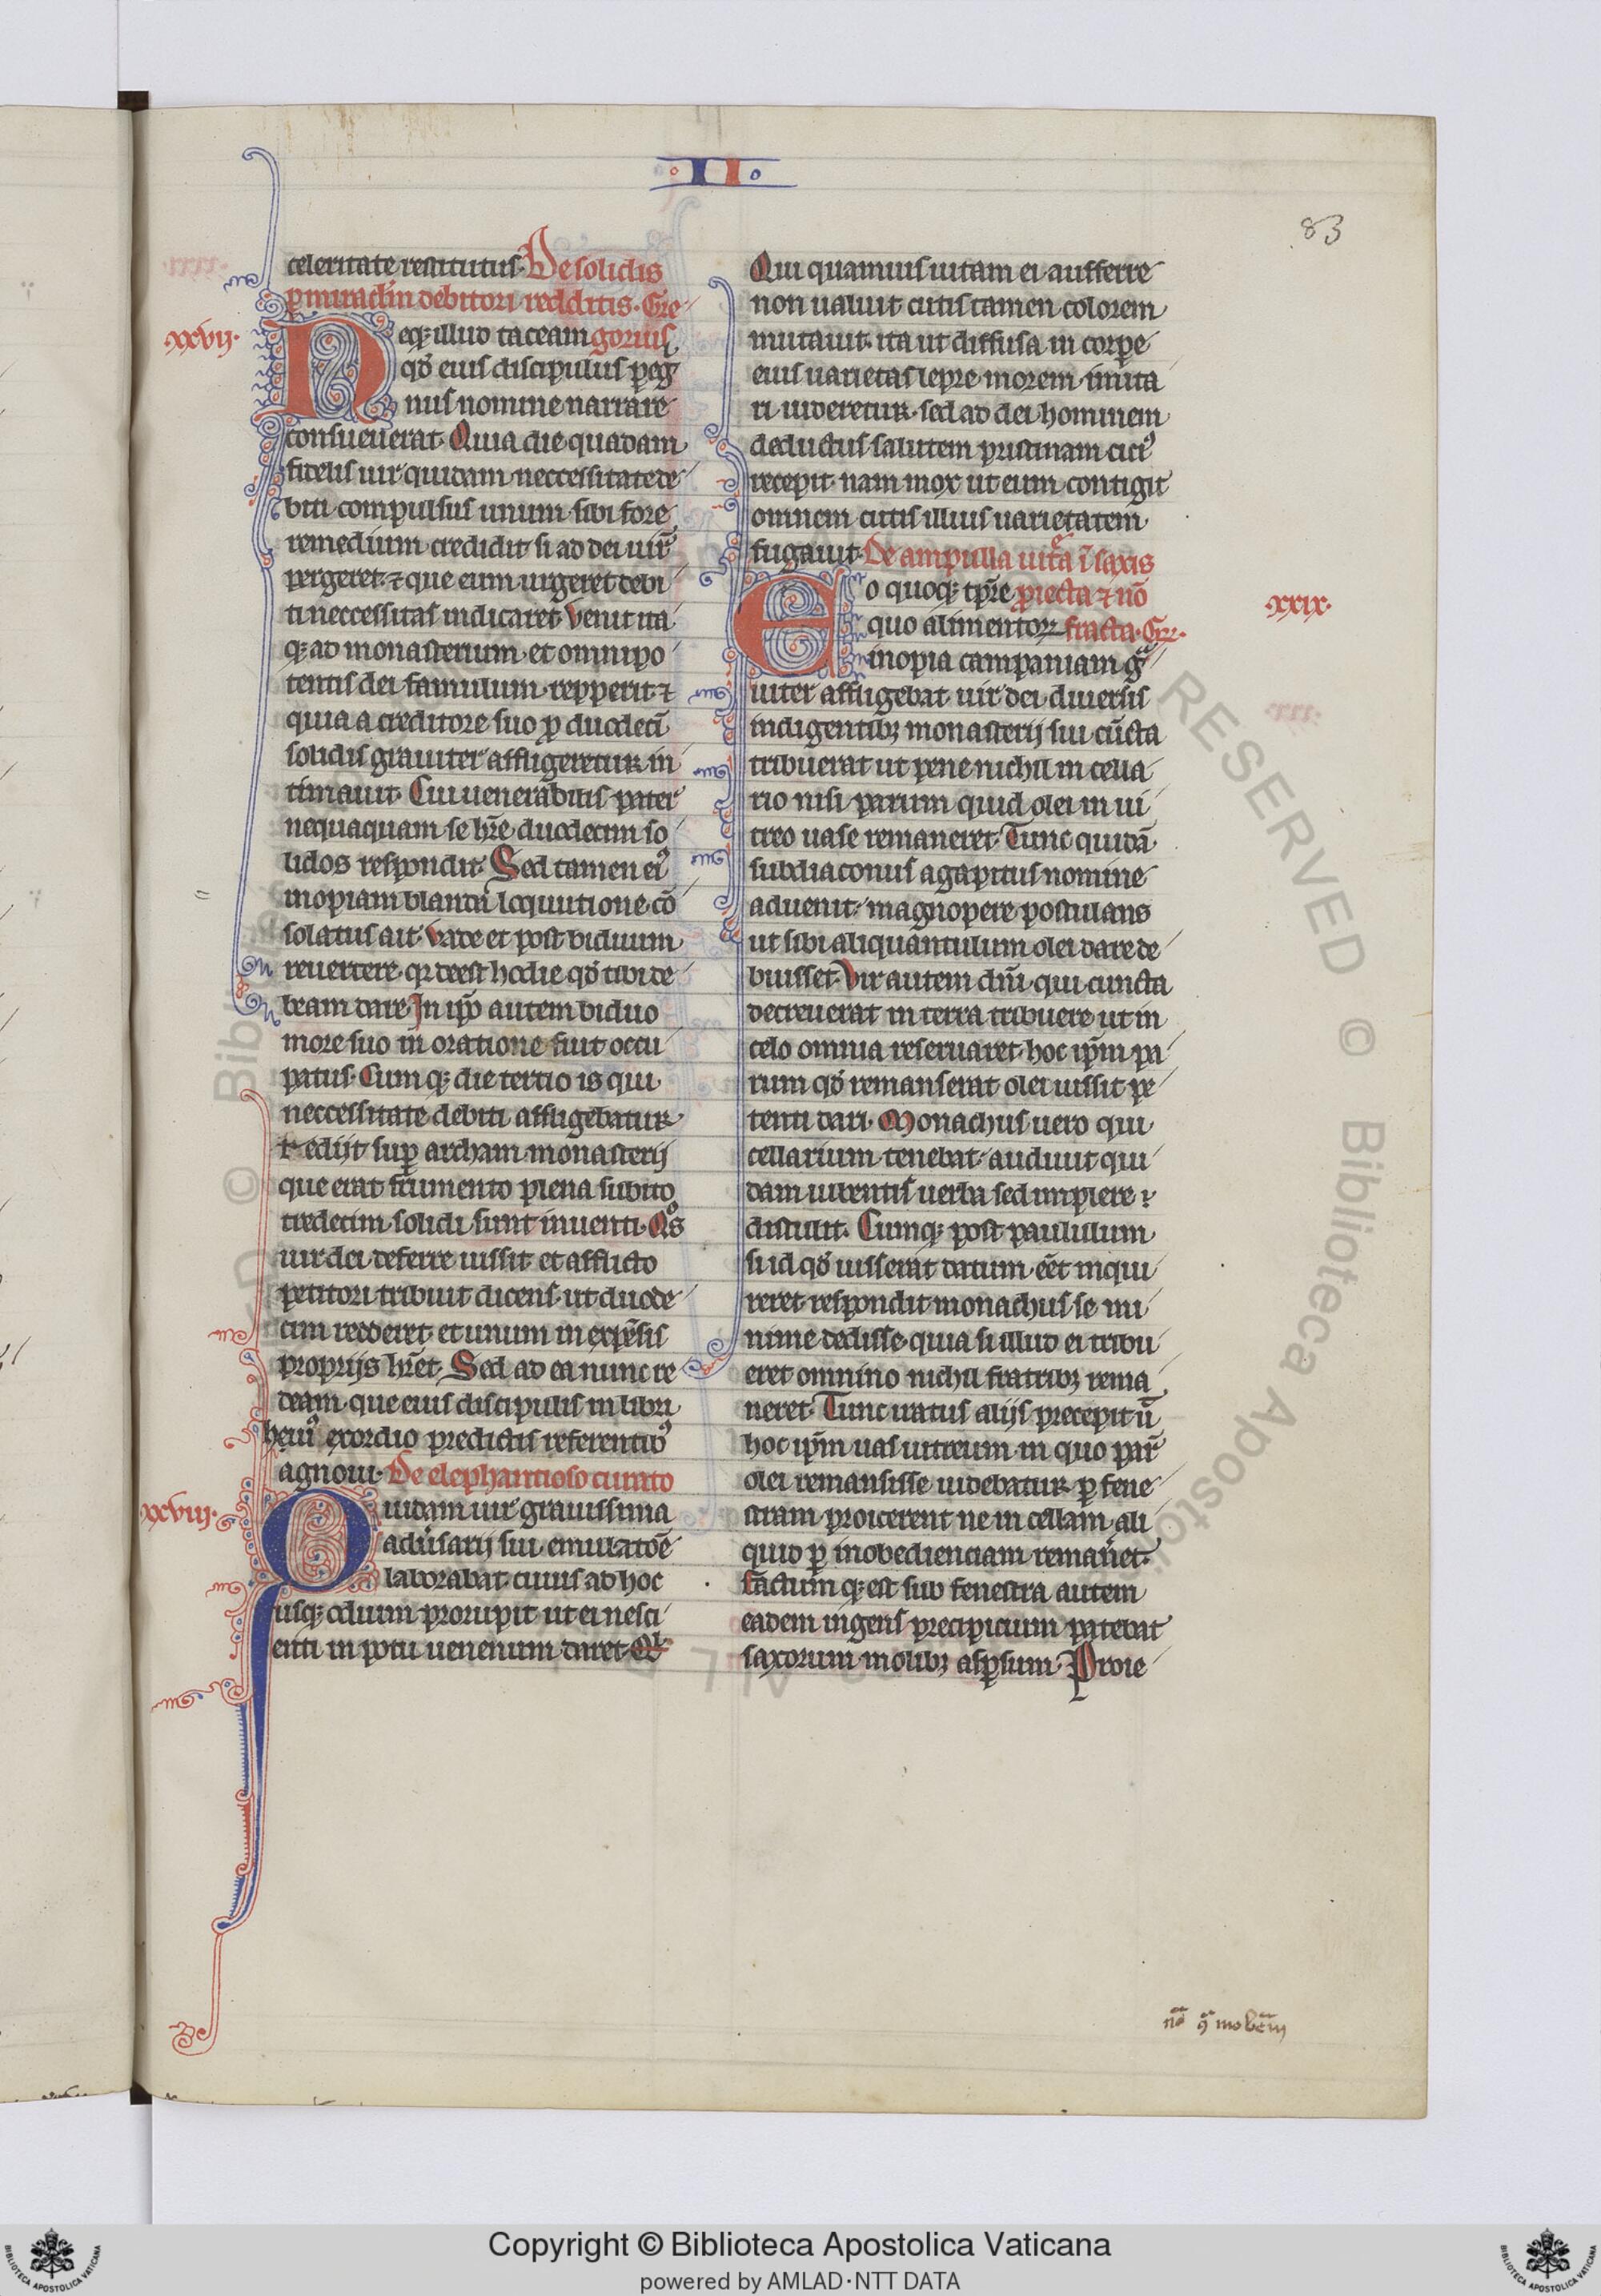 · I I ·
83
celeritate restitutus. De solidis
ꝑ miraclm̄ debitori redditis. Gre
xxvij.
Neqꝫ illud taceam gorius
qd̓ eius discipulus ꝑeg
nus nomine narrare
consueuerat. Quia die quadam
fidelis uir quidam neccessitate de
biti compulsus unum sibi fore
remedium credidit si ad dei uir̄
pergeret. ⁊ que eum urgeret debi
ti neccessitas indicaret. Venit ita
qꝫ ad monasterium. et omnipo
tentis dei famulum repperit. ⁊
quia a creditore suo ꝓ duodecī
solidis grauiter affligeretur in
timauit. Cui uenerabilis pater
nequaquam se hr̄e duodecim so
lidos respondit. Sed tamen ei᾿
inopiam blanda locutione cō
solatus ait. Vade et post biduum
reuertere. qr deest hodie qd̓ tibi de
beam dare. In ip̄o autem biduo
more suo in oratione fuit occu
patus. Cum qꝫ die tertio is qui
neccessitate debiti affligebatur
redijt. suꝑ archam monasterij
que erat frumento plena subito
tredecim solidi sunt inuenti. Qͦs
uir dei deferre iussit. et afflicto
petitori tribuit dicens. ut duode
cim redderet. et unum in expēsis
proprijs hr̄et. Sed ad ea nunc re
deam. que eius discipulis in libri
huiu᾿ exordio predictis referentib᾿
agnoui. De elephantioso curato
xxviij.
Quidam uir grauissima
adu̓sarij sui emulatōe
laborabat. cuius ad hoc
usqꝫ odium prorupit ut ei nesci
enti in potu uenenum daret.
Qui quamuis uitam ei aufferre
non ualuit cutis tamen colorem
mutauit. ita ut diffusa in corꝑe
eius uarietas lepre morem imita
ri uideretur. sed ad dei hominem
deductus salutem pristinam citi᾿
recepit. nam mox ut eum contigit
omnem cutis illius uarietatem
fugauit. De ampulla uitͣa ī saxis
Eo quoqꝫ tp̄re ꝓiecta ⁊ nō
xxix.
quo alimentoꝝ fracta. Gr̄.
inopia campaniam gͣ
uiter affligebat. uir dei diuersis
indigentibꝫ monasterij sui cūcta
tribuerat ut pene nichil in cella
rio nisi parum quid olei in ui
treo uase remaneret. Tunc quidā
subdiaconus agapitus nomine
aduenit. magnopere postulans
ut sibi aliquantulum olei dare de
buisset. Vir autem dn̄i. qui cuncta
decreuerat in terra tribuere ut in
celo omnia reseruaret. hoc ip̄m pa
rum qd̓ remanserat olei iussit pe
tenti dari. Monachus uero qui
cellarium tenebat. audiuit qui
dam iubentis uerba sed implere
distulit. Cumqꝫ post paululum
si id qd̓ iusserat datum eēt inqui
reret. respondit monachus se mi
nime dedisse. quia si illud ei tribu
eret omnino nichil fratribꝫ rema
neret. Tunc iratus alijs precepit ū
hoc ip̄m uas uitreum in quo par̄
olei remansisse uidebatur ꝑ fene
stram proicerent ne in cellam ali
quid ꝑ inobedienciam remaneͬt.
factum qꝫ est sub fenestra autem
eadem ingens precipicium patebat
saxorum molibꝫ asꝑsum. Proie
Copyright © Biblioteca Apostolica Vaticana
powered by AMLAD·NTT DATA